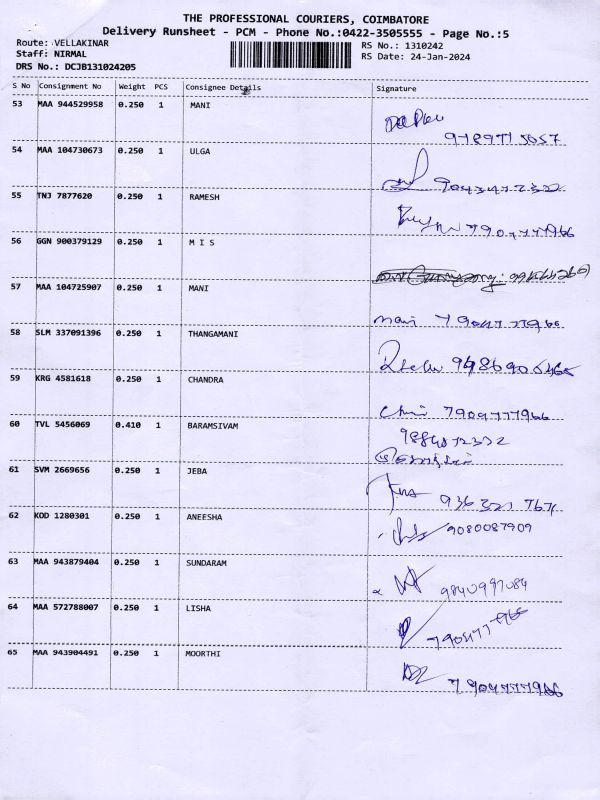 THE PROFESSIONAL COURIERS, COIMBATORE
Delivery Runsheet - PCM - Phone No.:0422-3505555 - Page No.:5
Route: VELLAKINAR RS No.: 1310242
Staff: NIRMAL RS Date: 24-Jan-2024
DRS No.: DCJB131024205
S No Consignment No Weight PCS Consignee Details Signature
53 MAA 944529958 0.250 1 MANI
54 MAA 104730673 0.250 1 ULGA
55 TNJ 7877620 0.250 1 RAMESH
56 GGN 900379129 0.250 1 M I S
57 MAA 104725907 0.250 1 MANI
mani
58 SLM 337091396 0.250 1 THANGAMANI
59 KRG 4581618 0.250 1 CHANDRA
7904777966
60 TVL 5456069 0.410 1 BARAMSIVAM
61 SVM 2669656 0.250 1 JEBA
62 KOD 1280301 0.250 1 ANEESHA
9080087909
63 MAA 943879404 0.250 1 SUNDARAM
9840997084
64 MAA 572788007 0.250 1 LISHA
65 MAA 943904491 0.250 1 MOORTHI
7904777966